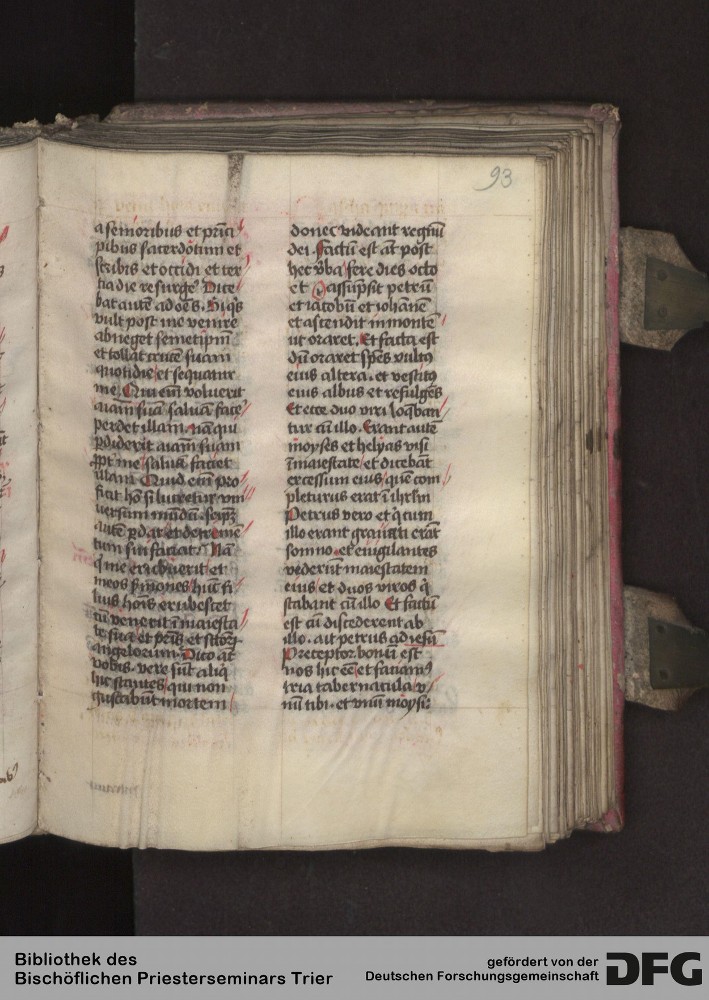 93
a senioribus et prīci
pibus sacerdotum et
scribis et occidi et ter
tia die resurge᷑ Dice
bat autē ad oēs. Si q's
vult post me venire
abneget semetipm̄
et tollat crucē suam
quotidie et sequatur
me. Qui em̄ voluerit
aīam suā saluā face᷑
perdet illam. nā qui
ꝑdiderit aīam suam
ꝓpt' me saluā faciet
illam Quid em̄ pro
ficit hō si lucretur vni
uersum mūdū. seipꝫ
autē ꝑdat et detrimē
tum sui faciat. Nā
q' me erubuerit et
meos s'mones hūc fi
lius hoīs erubescet
cū venerit ī maiesta
te sua et pr̄is et sctōꝝ
angelorum. Dico aūt
vobis. vere sūt aliq'
hic stātes qui non
gustabūt mortem
donec videant regnū
dei. Factū est aūt post
hec v'ba fere dies octo
et assūpsit petrū
et iacobū et iohānē
et ascendit in montē
ut oraret. Et facta est
dū oraret sp̄es vult9
eius altera. et vestit9
eius albus et refulgēs
Et ecce duo viri loq̄ban
tur cū illo. Erant autē
moyses et helyas visi
ī maiestate et dicebāt
excessum eius quē com
pleturus erat ī ihrlm̄
Petrus vero et q' cum
illo erant grauati erāt
somno. et euigilantes
viderūt maiestatem
eius et duos viros q'
stabant cū illo Et factū
est cū discederent ab
illo. ait petrus ad iesū
Preceptor. bonū est
nos hic eē et faciam9
tria tabernacula v
nū tibi. et vnū moysi:
Bibliothek des
Bischöflichen Priesterseminars Trier
gefördert von der
Deutschen Forschungsgemeinschaft
DFG